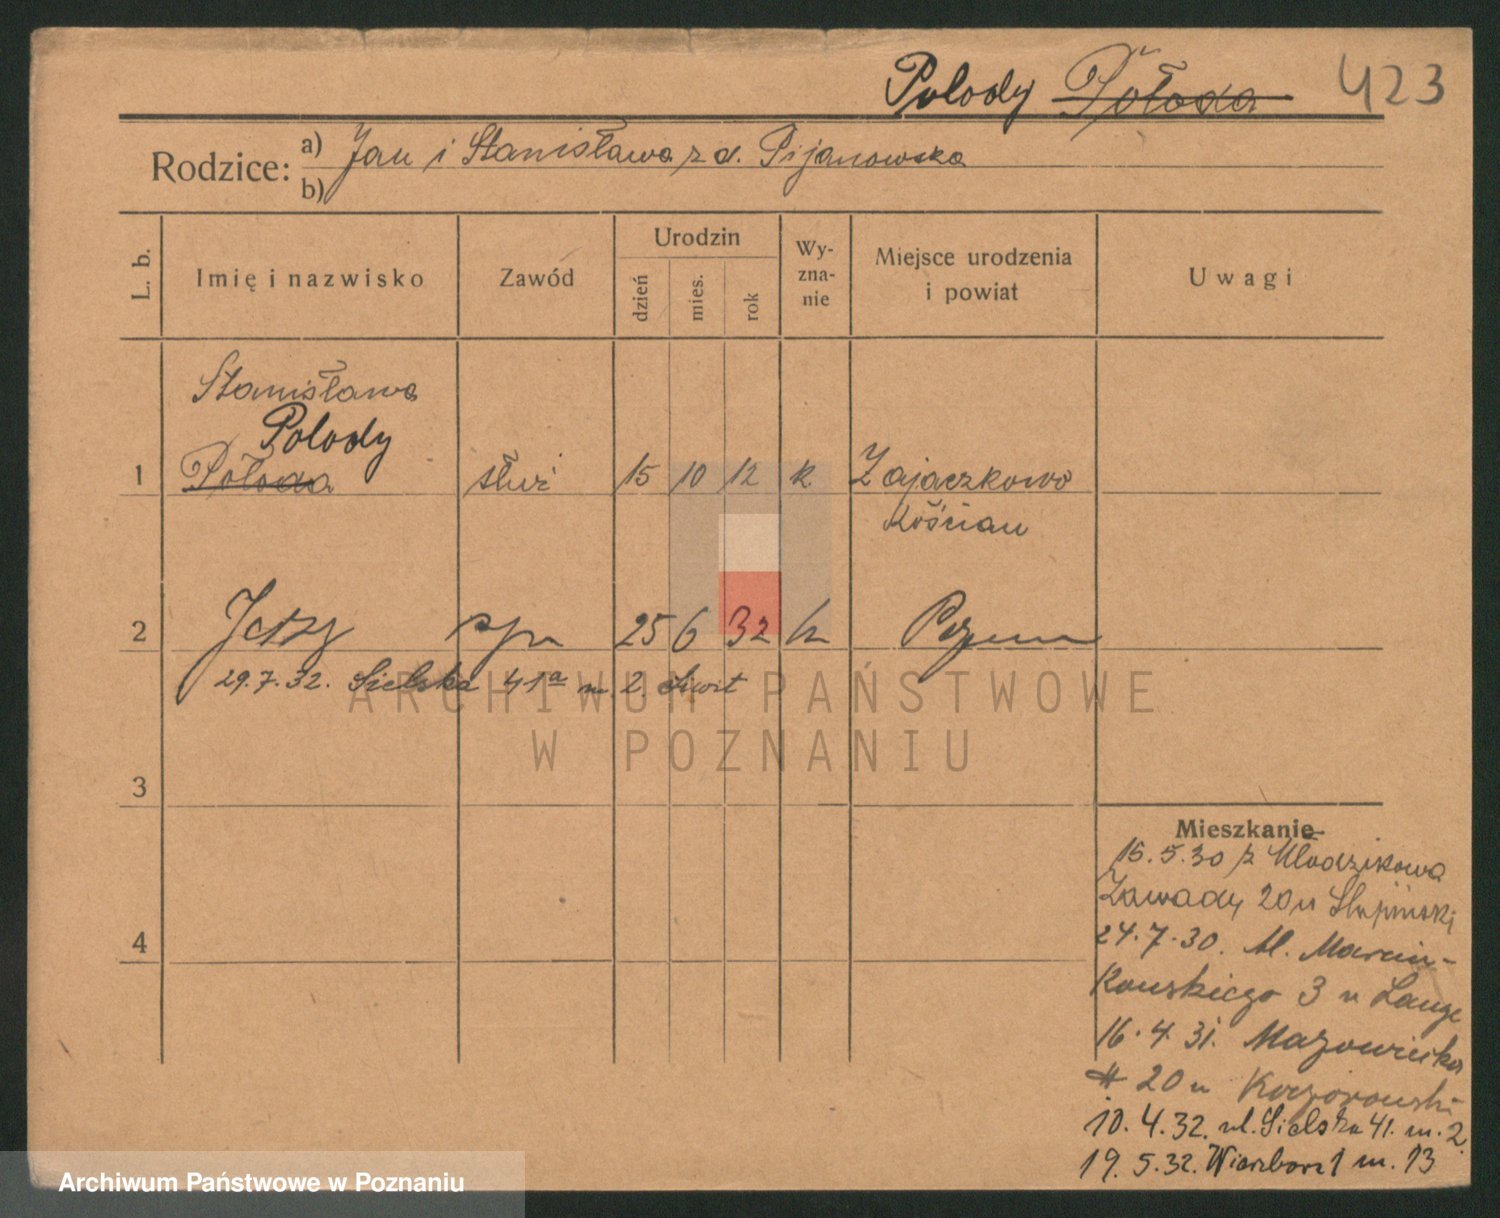 Polody Połoda 423
Rodzice: a) Jan i Stanisława z d. Pijanowska
b)
L. b. Imię i nazwisko Zawód Urodzin dzień mies. rok Wy-zna-nie Miejsce urodzenia i powiat Uwagi
Stanisława
Polody
1 Połoda służ 15 10 12 k Zajączkowo
Kościan
2 Jerzy syn 25 6 32 k
29.7.32. Sielska 41a m 2.
ARCHIWUM PAŃSTWOWE
W POZNANIU
3
Mieszkanie
15.5.30 z Włodzikowa
Zawady 20 u Słupiński
4
24.7.30. Al. Marcin-
kowskiego 3 u Lange
16.4.31. Mazowiecka
20 u
10.4.32. ul. Sielska 41. m. 2
19.5.32. m. 13
Archiwum Państwowe w Poznaniu